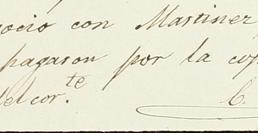 ocio con Martinez
pagaron por la cop
del cor.te
C.